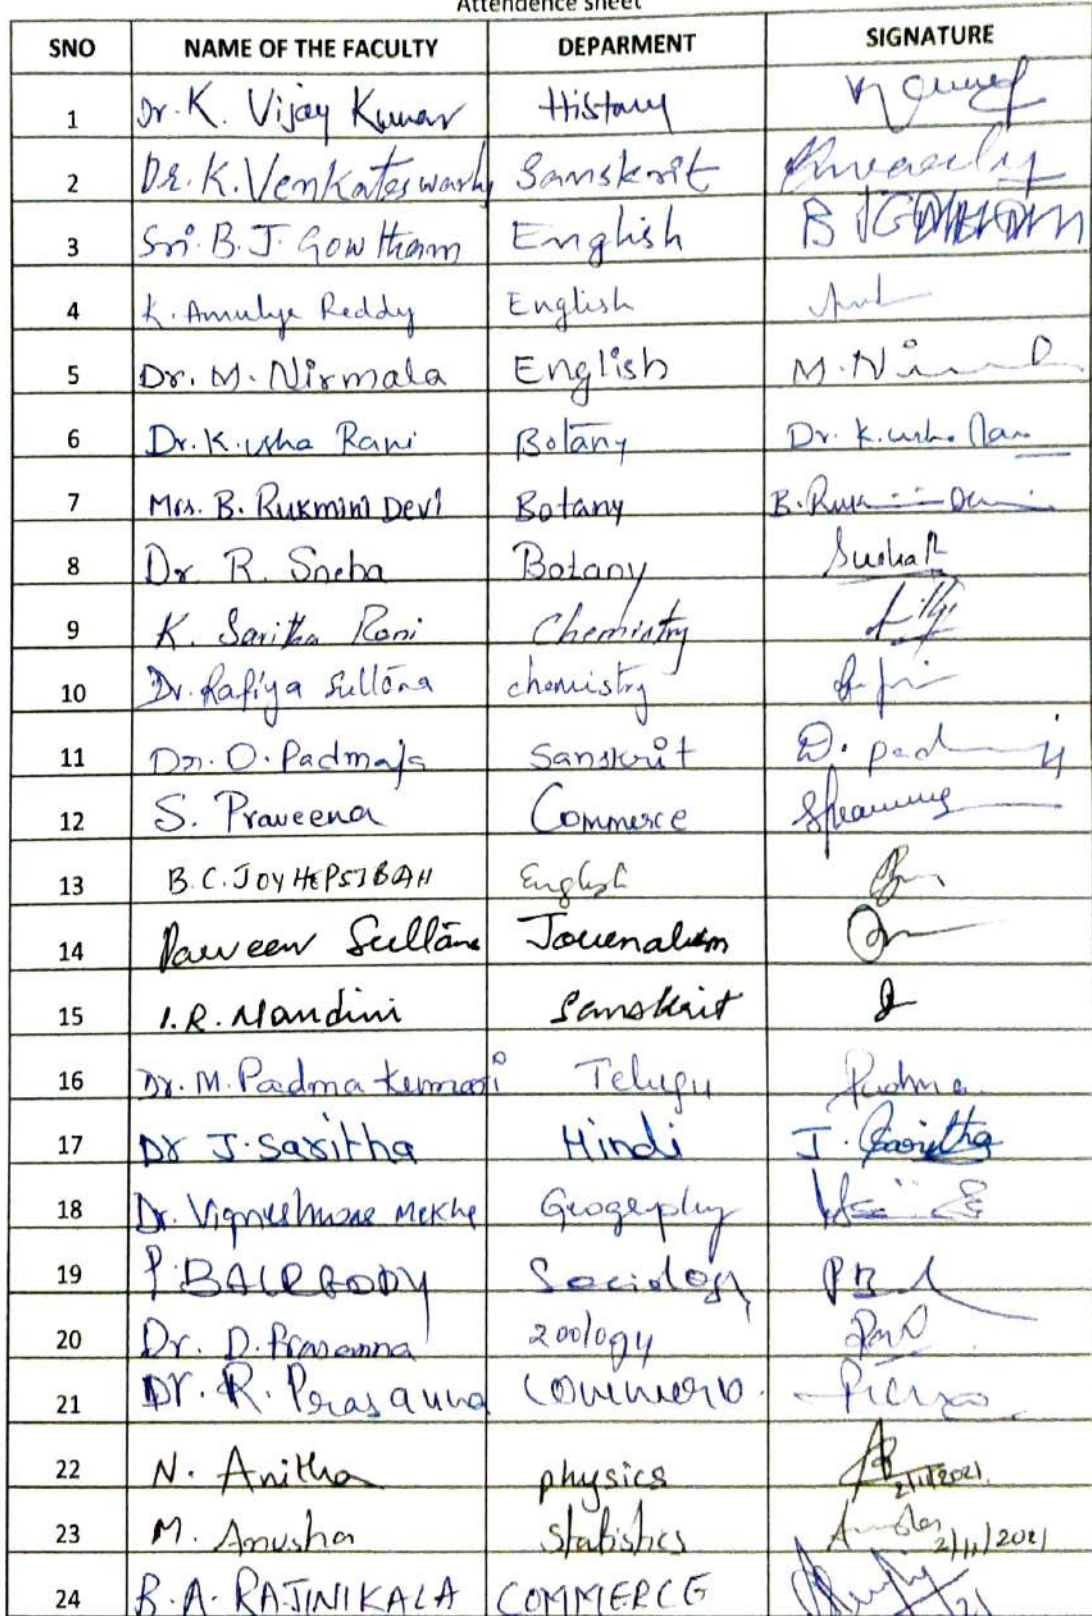 Attendence sheet
SNO NAME OF THE FACULTY DEPARMENT SIGNATURE
1 Dr. K. Vijay Kumar History
2 Dr. K. Venkateswarlu Sanskrit
3 Sri. B. J. Gowtham English B J GOWTHAM
4 K. Amulya Reddy English
5 Dr. M. Nirmala English M. Ni
6 Dr. K. Usha Rani Botany Dr. K. Usha Ran
7 Mrs. B. Rukmini Devi Botany B. Ruk
8 Dr R. Sneha Botany Sneha R
9 K. Saritha Rani Chemistry
10 Dr. Rafiya Sultana chemistry
11 Dr. D. Padmaja Sanskrit D. pad
12 S. Praveena Commerce
13 B. C. JOY HEPSIBAH English
14 Parveen Sultana Journalism
15 I. R. Nandini Sanskrit
16 Dr. M. Padma Kumari Telugu Padma
17 Dr J. Saritha Hindi J. Saritha
18 Dr. Vigneshwar Mekhe Geography
19 P. BALREDDY Sociology P B
20 Dr. D. Prasanna zoology
21 Dr. R. Prasanna Commerce
22 N. Anitha physics 2/11/2021.
23 M. Anusha Statistics 2/11/2021
24 B. A. RAJINIKALA COMMERCE